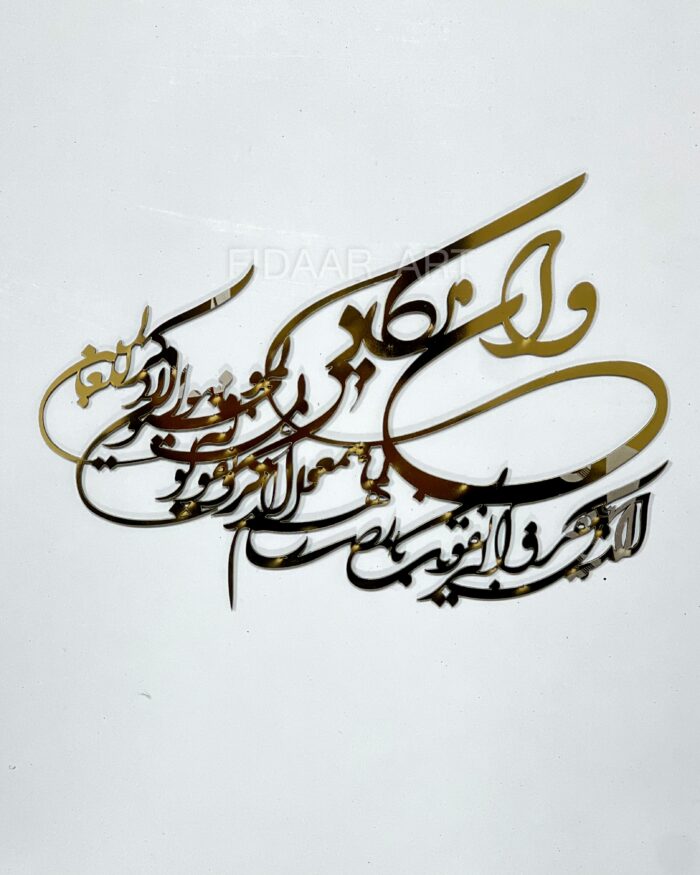 FIDAAR_ART
وان یکاد
الذین کفروا لیزلقونک بابصارهم
لما سمعوا الذکر و یقولون
انه لمجنون و ما هو الا ذکر
للعالمین